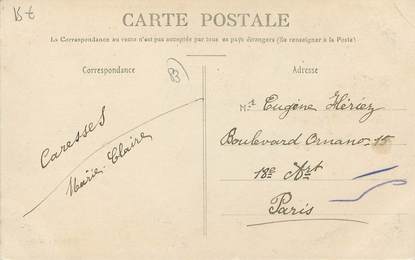 15 €
CARTE POSTALE
La Correspondance au recto n'est pas acceptée par tous les pays étrangers (Se renseigner à la Poste)
Correspondance
83
Adresse
Caresses
Marie-Claire
Mr Eugène Hériez
Boulevard Ornano 15
18e Art
Paris